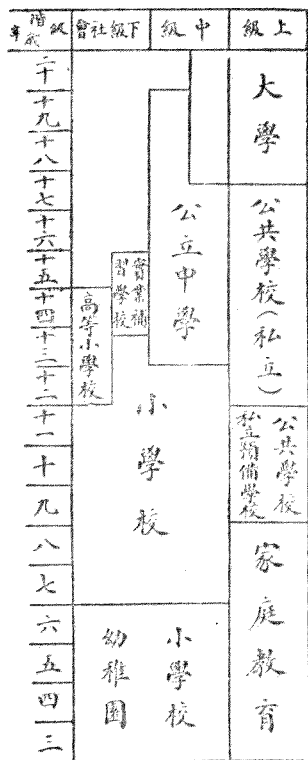 上級
中級
下級社會
階級
年歲
大學
公共學校（私立）
公共學校
私立預備學校
家庭教育
公立中學
實業補
習學校
高等小學校
小學校
小學校
幼稚園
二十
十九
十八
十七
十六
十五
十四
十三
十二
十一
十
九
八
七
六
五
四
三